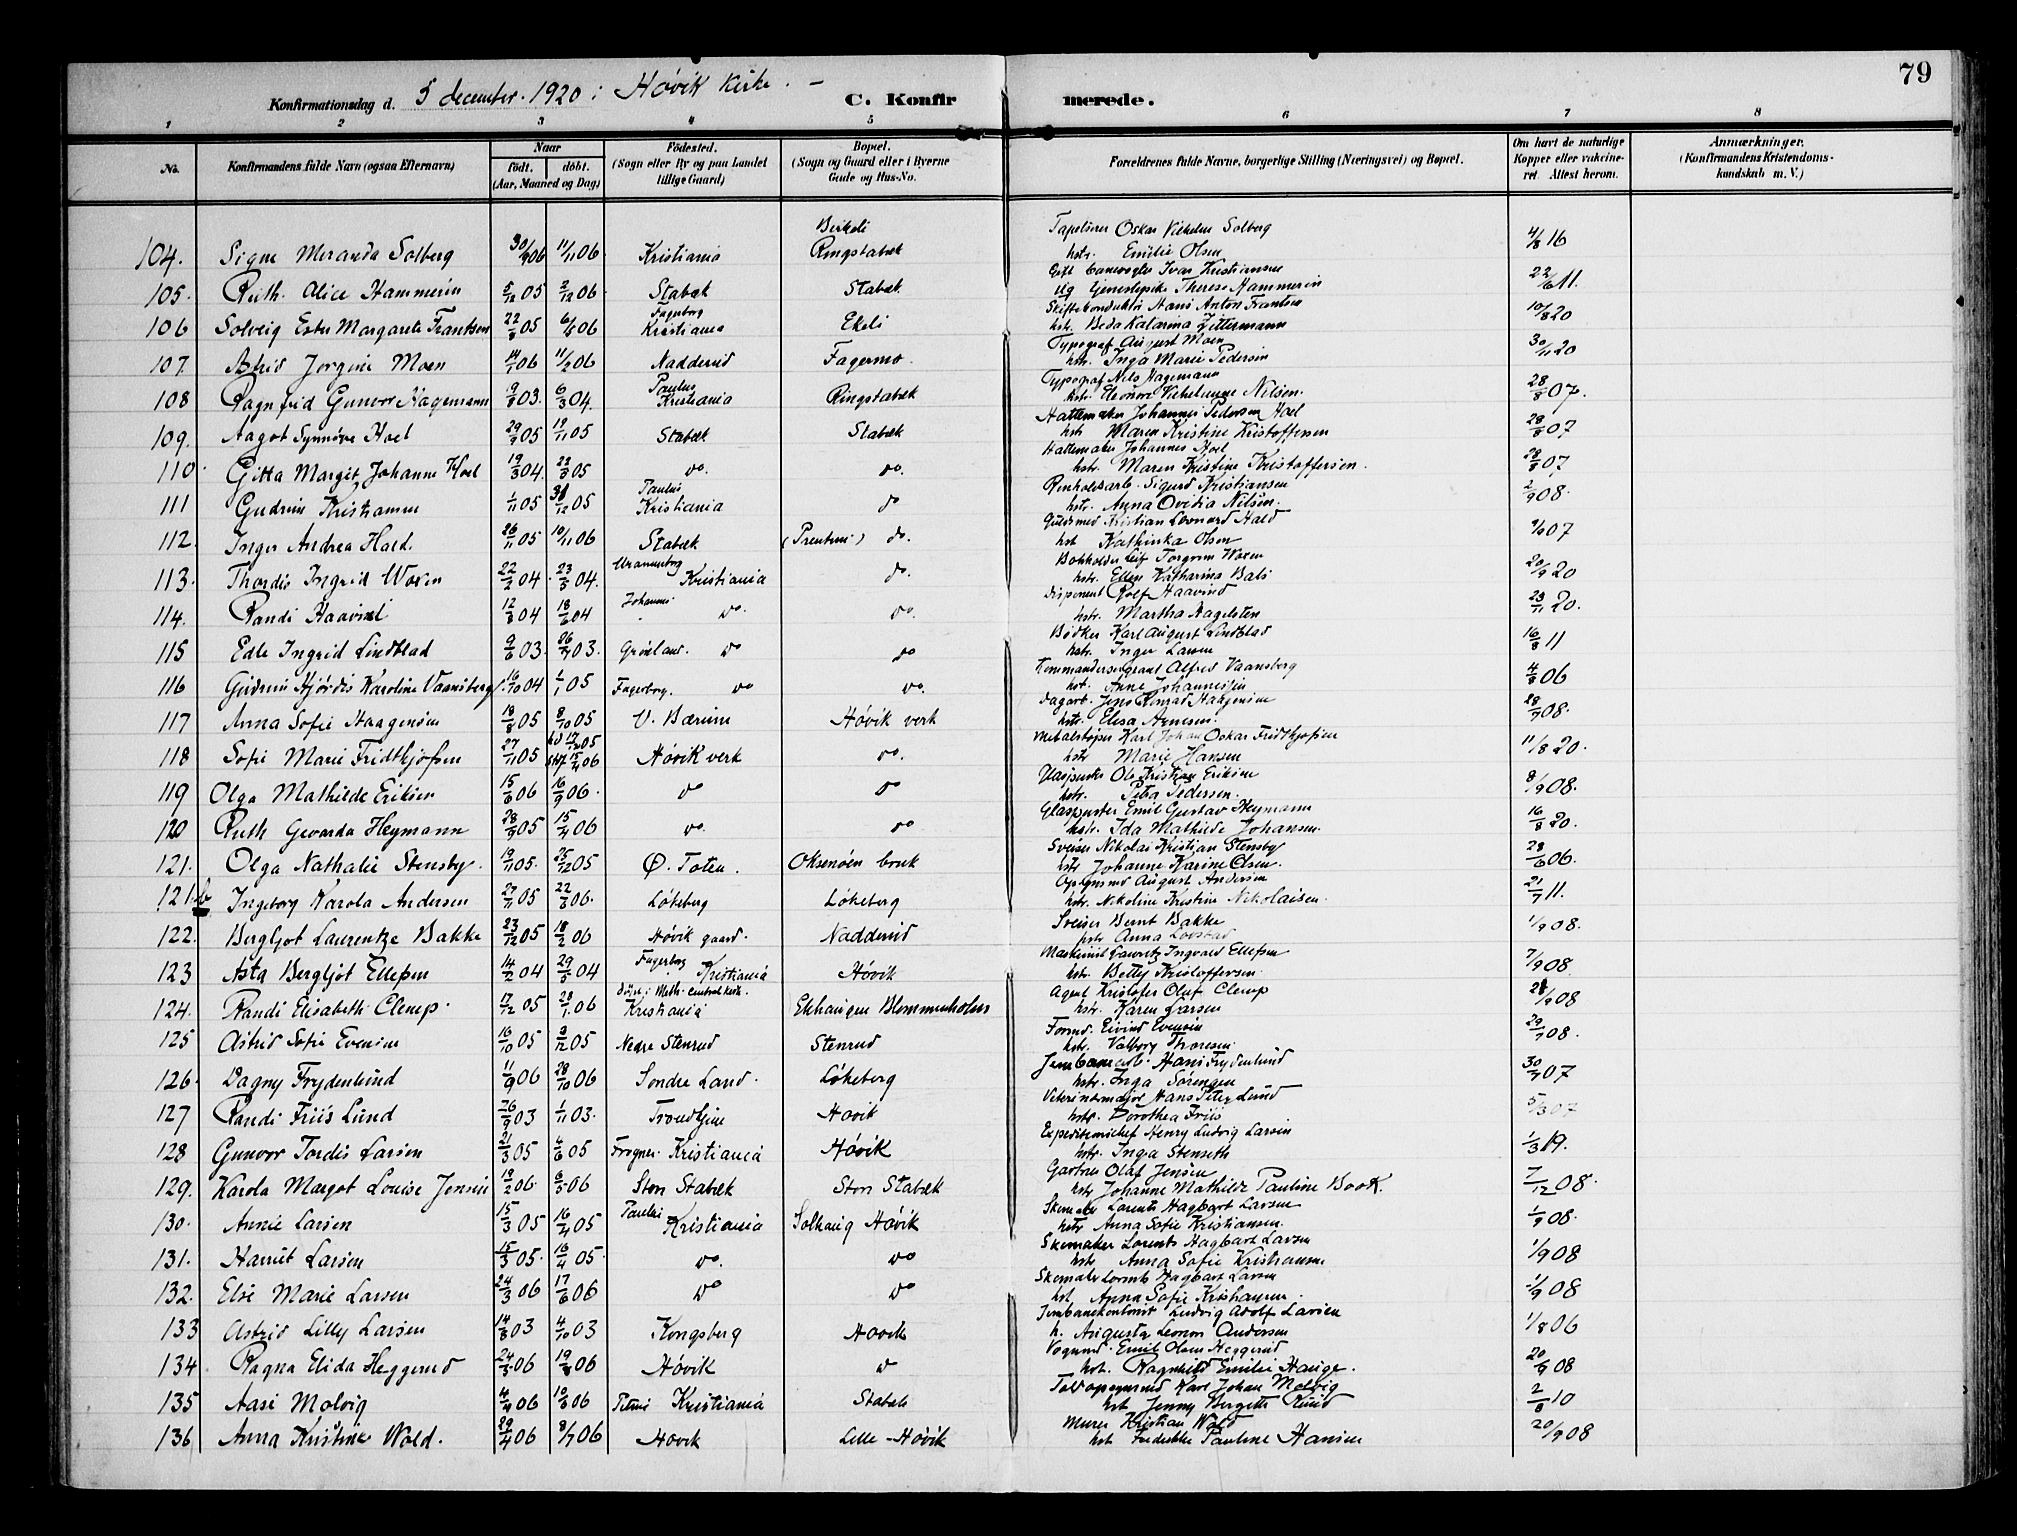 79
Konfirmationsdag d. 5 december. 1920 i Høvik Kirke. –
C. Konfirmerede.
1 2 3 4 5 6 7 8
No. Konfirmandens fulde Navn (ogsaa Efternavn) Naar født. døbt. (Aar, Maaned og Dag) Fødested. (Sogn eller By og paa Landet tillige Gaard) Bopæl. (Sogn og Gaard eller i Byerne Gade og Hus-No. Forældrenes fulde Navne, borgerlige Stilling (Næringsvei) og Bopæl. Om havt de naturlige Kopper eller vakcineret. Attest herom. Anmærkninger. (Konfirmandens Kristendomskundskab m. V.)
Birkeli Oskar Vilhelm Solberg
104. Signe Meranda Solberg 30/9 06 11/11 06 Kristiania Ringstabæk hstr. Emilie Olsen 4/8 16
Ivar Kristiansen
105. Ruth Alice Hammerin 5/12 05 2/12 06 Stabæk Stabæk Ug Therese Hammerin 22/6 11.
Fagerborg Skiftekonduktør Hans Anton Frantsen
106 Solveig Ester Margarete Frantsen 22/8 05 6/6 06 Kristiania Ekeli hstr. Beda Katarina Zittermann 10/8 20
Typograf August Moen
107. Astrid Jorgine Moen 14/1 06 11/2 06 Nadderud Fagermo hstr. Inga Marie Pedersen 30/11 20
Paulus Typograf Nils Hagemann
108 Ragnfrid Gunvor Hagemann 19/8 03. 6/3 04. Kristiania Ringstabæk hstr. Eleonora Vilhelmine Nilsen. 28/8 07.
Hattemaker Johannes Pedersen Hoel
109. Aagot Synnøve Hoel 29/9 05 19/11 05 Stabæk Stabæk hstr Maren Kristine Kristoffersen 28/8 07
Hattemaker Johannes Hoel
110. Gitta Margit Johanne Hoel 19/3 04. 22/3 05 do. do. hstr. Maren Kristine Kristoffersen. 28/8 07
Paulus Renholdsarb. Sigurd Kristiansen
111 Gudrun Kristiansen 1/11 05 31/12 05 Kristiania do hstr. Anna Ovidia Nilsen. 2/9 08.
Guldsmed Kristian Leonard Hald
112. Inger Andrea Hald. 26/11 05 10/11 06 Stabæk do. hst Kathinka Olsen 07
Uranienborg Bokholder Leif Torgrim Woxen
113. Thordis Ingrid Woxen 22/2 04. 23/3 04. Kristiania do. hstr. Ellen Katharina Bals 20/9 20
Johannes Disponent Rolf Haavind
114. Randi Haavind 12/3 04 18/6 04 do. do. hstr. Martha Hagelsten 23/11 20.
Bødker Karl August Lindblad
115 Edle Ingrid Lindblad 9/6 03 26/7 03. Grønland. do do hstr. Inger Larsen 16/8 11
Kommandersergeant Alfred Vaansberg
116 Gudrun Hjørdis Karoline Vaansberg. 16/10 04 1/1 05 Fagerborg. do do. hst. Anne Johannessen 4/8 06
Dagarb. Jens Konrad Haagensen
117 Anna Sofie Haagensen 18/8 05 8/10 05 V. Bærum Høvik verk hstr. Elisa Arnesen. 28/7 08.
Metalstøper Karl Johan Oskar Fridthjofsen
118 Sofie Marie Fridthjofsen 27/11 05 hd 17/12 05 stf 15/4 06 Høvik verk do. hstr Marie Hansen 11/8 20.
Ole Kristian Eriksen
119 Olga Mathilde Eriksen 15/6 06 16/9 06. do do hstr. Petra Pedersen. 8/9 08.
Glaspuster Emil Gustav Heymann
120 Ruth Gevarda Heymann 28/9 05 15/4 06 do. do hstr. Ida Mathilde Johansen. 16/8 20.
Sveiser Nikolai Kristian Stensby
121. Olga Nathalie Stensby. 19/11 05. 26/12 05 Ø. Toten. Oksenøen bruk hstr Johanne Karine Olsen. 28/6 06.
Opsynsmd August Andersen
121.b Ingeborg Karola Andersen 27/11 05 22/3 06. Løkeberg Løkeberg hstr. Nikoline Kristine Nikolaisen. 21/7 11.
Sveiser Bernt Bakke
122. Bergljot Laurentze Bakke 23/12 05 18/2 06 Høvik gaard. Nadderud hstr Anna Lovstad 1/9 08.
Fagerborg Maskinist Lauritz Ingvald Ellefsen
123 Asta Bergljot Ellefsen 14/2 04 29/5 04 Kristiania Høvik hstr. Betty Kristoffersen. 7/9 08.
Døpt i Meth. centralkirk. Agent Kristofer Oluf Clemp
124. Randi Elisabeth Clemp. 17/2 05 28/1 06 Kristiania Ekhaugen Blommenholm hstr. Karen Larsen 28/9 08
Formd. Eivind Evensen
125 Astrid Sofie Evensen 16/10 05 3/12 05 Nedre Stenrud Stenrud hstr. Valborg Thoresen. 29/7 08.
Jernbanearb. Hans Frydenlund
126. Dagny Frydenlund 11/9 06 28/10 06 Søndre Land. Løkeberg hstr. Inga Sørensen 30/7 07
Veterinærmajor Hans Peter Lund
127 Randi Friis Lund 26/9 03 1/11 03. Trondhjem Høvik hstr. Dorothea Friis 5/3 07
Expeditionschef Henry Ludvig Larsen
128 Gunvor Tordis Larsen 21/3 05 4/6 05 Frogner. Kristiania Høvik hstr. Inga Stenseth 1/3 19.
Gartner Olaf Jensen
129. Karola Margot Louise Jensen 19/2 06. 6/5 06 Store Stabæk Store Stabæk hstr Johanne Mathilde Pauline Book. 7/12 08.
Paulus Skomaker Lorents Hagbart Larsen
130. Annie Larsen 15/3 05 16/4 05 Kristiania Solhaug Høvik hstr Anna Sofie Kristiansen. 1/9 08.
Skomaker Lorents Hagbart Larsen
131. Harriet Larsen 15/3 05. 16/4 05. do. do hstr Anna Sofie Kristiansen 1/9 08
Skomaker Lorents Hagbart Larsen
132. Else Marie Larsen 24/3 06 17/6 06 do do hst. Anna Sofie Kristiansen. 1/9 08
Jernbanekontorist Ludvig Adolf Larsen
133 Astrid Lilly Larsen 14/8 03 4/10 03 Kongsberg Høvik h. Augusta Leonore Andersen 1/8 06
Vognmd. Emil Olsen Heggerud
134. Ragna Elida Heggerud 24/5 06 19/8 06 Høvik do hst. Ragnhild Emilie Hauge. 20/9 08
Karl Johan Molvig
135 Aase Molvig 4/4 06 10/6 06 Petrus Kristiania Stabæk hst Jenny Bergette Ruud 2/8 10
Murer Kristian Wold
136. Anna Kristine Wold. 29/4 06 8/7 06 Høvik Lille-Høvik hst Fredrikke Pauline Hansen 20/9 08